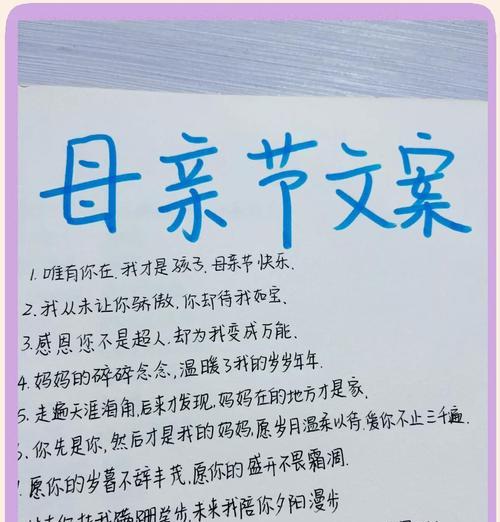 母亲节文案
1. 唯有你在, 我才是孩子, 母亲节快乐.
2. 我从未让你骄傲, 你却待我如宝.
3. 感恩您不是超人, 却为我变成万能.
4. 妈妈的碎碎念念, 温暖了我的岁岁年年.
5. 走遍天涯海角, 后来才发现, 妈妈在的地方才是家.
6. 你先是你, 然后才是我的妈妈, 愿岁月温柔以待. 爱你不止三千遍.
愿你的岁暮不辞丰茂, 愿你的盛开不畏霜凋.
我蹒跚学步, 未来我陪你夕阳漫步